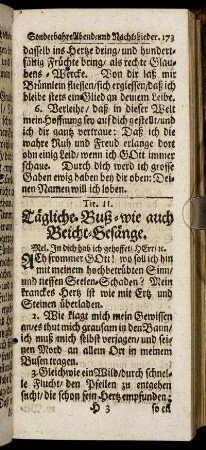 Sonderbahre Abend- und Nacht-Lieder. 173
dasselb ins Hertze dring/ und hundert-
fältig Früchte bring/ als rechte Glau-
bens-Wercke. Von dir laß mir
Brünnlein fliessen/sich ergiessen/daß ich
bleibe stets ein Glied an deinem Leibe.
6. Verleihe/ daß in dieser Welt
mein Hoffnung sey auf dich gestellt/ und
ich dir gantz vertraue: Daß ich die
wahre Ruh und Freud erlange dort
ohn einig Leid/ wenn ich GOtt immer
schaue. Durch dich werd ich grosse
Gaben ewig haben bey dir oben: Dei-
nen Namen will ich loben.
Tit. II.
Tägliche Buß- wie auch
Beicht-Gesänge.
Mel. In dich hab ich gehoffet/ HErr/ ꝛc.
ACh frommer GOtt! wo soll ich hin
mit meinem hochbetrübten Sinn/
und tieffen Seelen-Schaden? Mein
kranckes Hertz ist wie mit Ertz und
Steinen überladen.
2. Wie klagt mich mein Gewissen
an/es thut mich grausam in den Bann/
ich muß mich selbst verjagen/ und sei-
nen Mord an allem Ort in meinem
Busen tragen.
3. Gleichwie ein Wild/durch schnel-
le Flucht/ den Pfeilen zu entgehen
sucht/ die schon sein Hertz empfunden:
H 3 so en